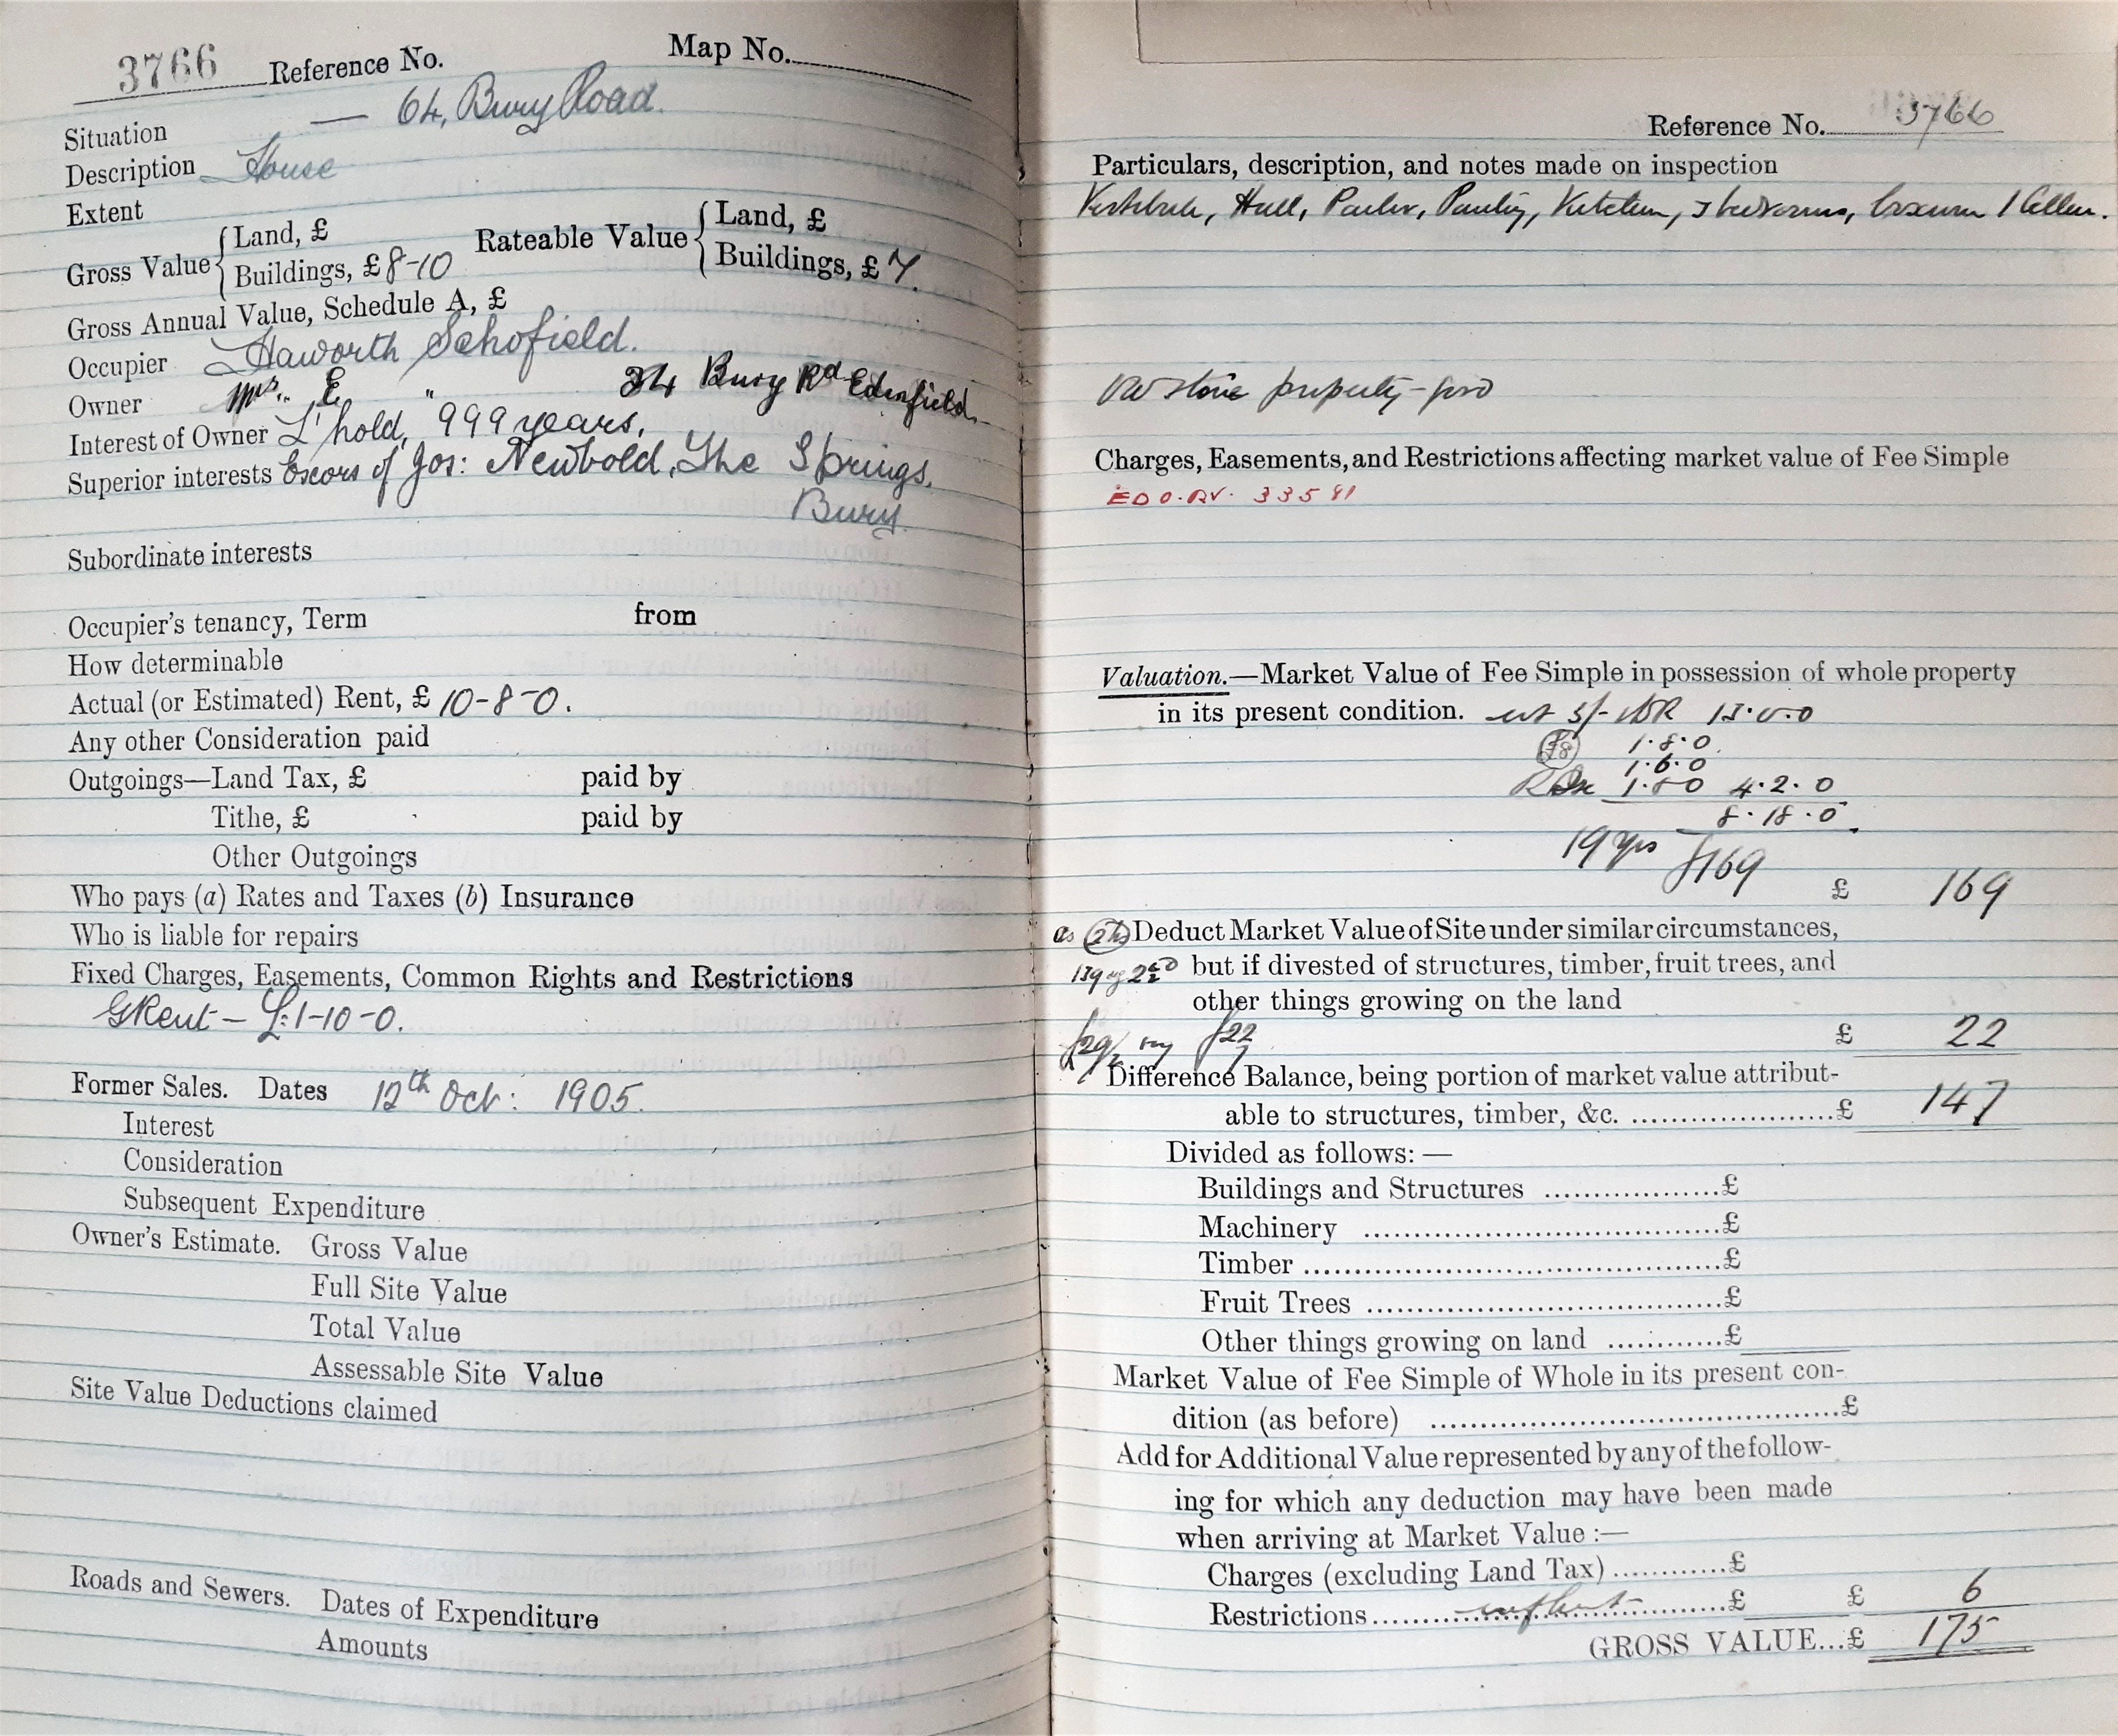 3766 Reference No. Map No.
Situation — 64, Bury Road.
Description House
Extent
Gross Value { Land, £
Buildings, £ 8-10
Rateable Value { Land, £
Buildings, £ 7.
Gross Annual Value, Schedule A, £
Occupier Haworth Schofield.
Owner Mrs. E. " 34 Bury Rd Edenfield
Interest of Owner L'hold, 999 years.
Superior interests Excors of Jos: Newbold, The Springs,
Bury.
Subordinate interests
Occupier's tenancy, Term from
How determinable
Actual (or Estimated) Rent, £ 10-8-0.
Any other Consideration paid
Outgoings—Land Tax, £ paid by
Tithe, £ paid by
Other Outgoings
Who pays (a) Rates and Taxes (b) Insurance
Who is liable for repairs
Fixed Charges, Easements, Common Rights and Restrictions
GRent — £:1-10-0.
Former Sales. Dates 12th Oct: 1905.
Interest
Consideration
Subsequent Expenditure
Owner's Estimate. Gross Value
Full Site Value
Total Value
Assessable Site Value
Site Value Deductions claimed
Roads and Sewers. Dates of Expenditure
Amounts
Reference No. 3766
Particulars, description, and notes made on inspection
Vestibule, Hall, Parlor, Pantry, Kitchen, 3 bedrooms, boxroom 1 Cellar.
stone property - good
Charges, Easements, and Restrictions affecting market value of Fee Simple
ED O. RV. 33581
Valuation.—Market Value of Fee Simple in possession of whole property
in its present condition. 5/- 13.0.0
£8 1.8.0.
1.6.0
1.8.0 4.2.0
8.18.0
19 yrs £169
£ 169
as Deduct Market Value of Site under similar circumstances,
but if divested of structures, timber, fruit trees, and
other things growing on the land
£22
£ 22
Difference Balance, being portion of market value attribut-
able to structures, timber, &c. ....................£ 147
Divided as follows: —
Buildings and Structures ..................£
Machinery ....................................£
Timber ..........................................£
Fruit Trees ....................................£
Other things growing on land ...........£
Market Value of Fee Simple of Whole in its present con-
dition (as before) ..........................................£
Add for Additional Value represented by any of the follow-
ing for which any deduction may have been made
when arriving at Market Value :—
Charges (excluding Land Tax)............£
Restrictions....................................£ £ 6
GROSS VALUE...£ 175